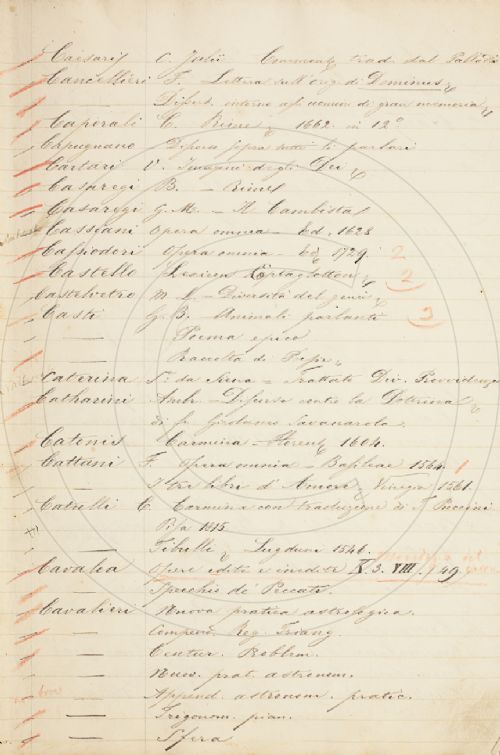 Caesaris C. Julii Comment. trad. dal
Cancellieri F. Lettera sull'orig. di Dominus
Dissert. intorno agli uomini di gran memoria
Caporali C. Rime 1662 in 12°
Capugnano Discorso sopra tutti li parlari
Cartari V. Imagini degli Dei
Casaregi B. — Rime
Casaregi G. M. — Il Cambista
Cassiani Opera omnia — Ed. 1628
Cassiodori Opera omnia — Ed. 1729. 2
Castello Lexicon Heptaglotton 2
Castelvetro
Casti G. B. — Animali parlanti 3
— Poema epico
— Raccolta di
Caterina S.ª da Siena — Trattato Div. Provvidenza
Catharini Amb. — Discorso contro la Dottrina
di fr. Girolamo Savonarola
Catenis Carmina — Florent. 1604.
Cattani F. Opera omnia — Basileae 1564. 1
— I tre libri d'Amore, Venegia 1561.
Catulli C. Carmina con traduzione di T. Puccini
Pisa 1815.
— Tibulli Lugduni 1546.
Cavalca Opere edite e inedite X. 3. VIII. 49
— Specchio de' Peccati.
Cavalieri Nuova pratica astrologica.
— Compend. Reg. Triang.
— Centur. Problem.
— Nuov. prat. astronom.
— Append. astronom. pratic.
— Trigonom. pian.
— Sfera